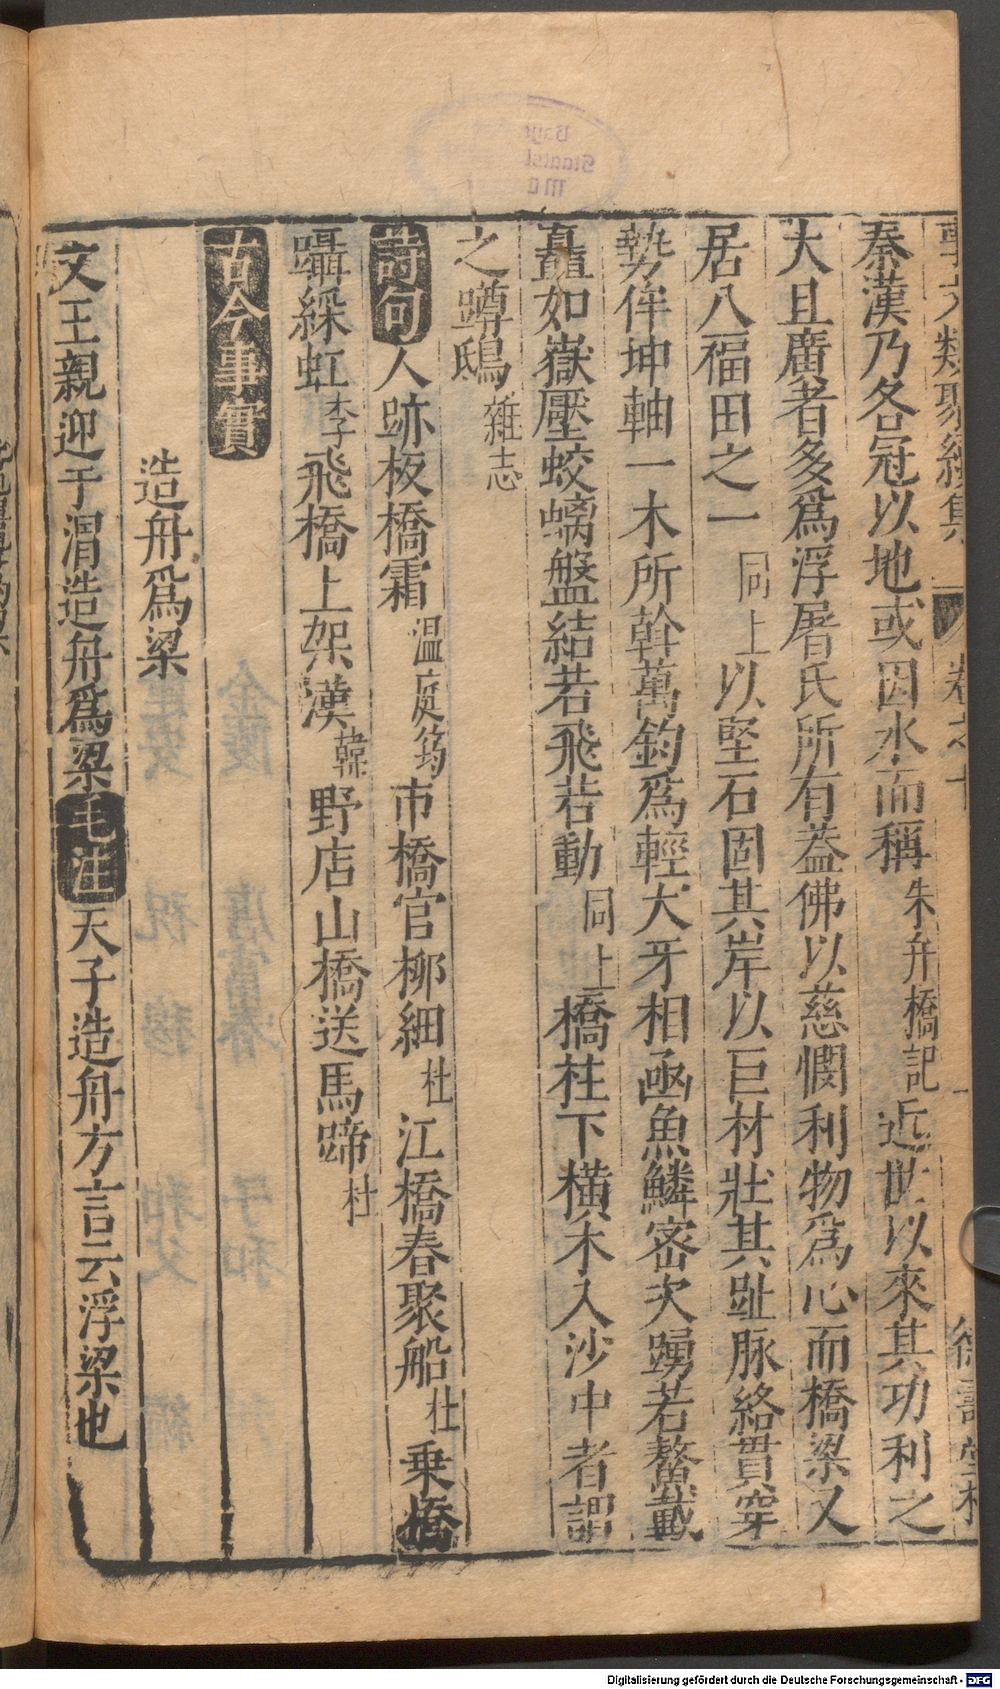 事文類聚續集
卷之十
秦漢乃各冠以地或因水而稱朱弁橋記近世以來其功利之
大且廣者多爲浮屠氏所有蓋佛以慈憫利物爲心而橋梁又
居八福田之一同上以堅石固其岸以巨材壯其趾脉絡貫穿
勢侔坤軸一木所幹萬鈞爲輕犬牙相函魚鱗密次踴若鰲戴
矗如嶽壓蛟螭盤結若飛若動同上橋柱下橫木入沙中者謂
之蹲鴟雜志
詩句人跡板橋霜温庭筠市橋官柳細杜江橋春聚船杜乗橋
躡綵虹李飛橋上架漢韓野店山橋送馬蹄杜
古今事實
造舟爲梁
文王親迎于渭造舟爲梁毛注天子造舟方言云浮梁也
Digitalisierung gefördert durch die Deutsche Forschungsgemeinschaft - DFG